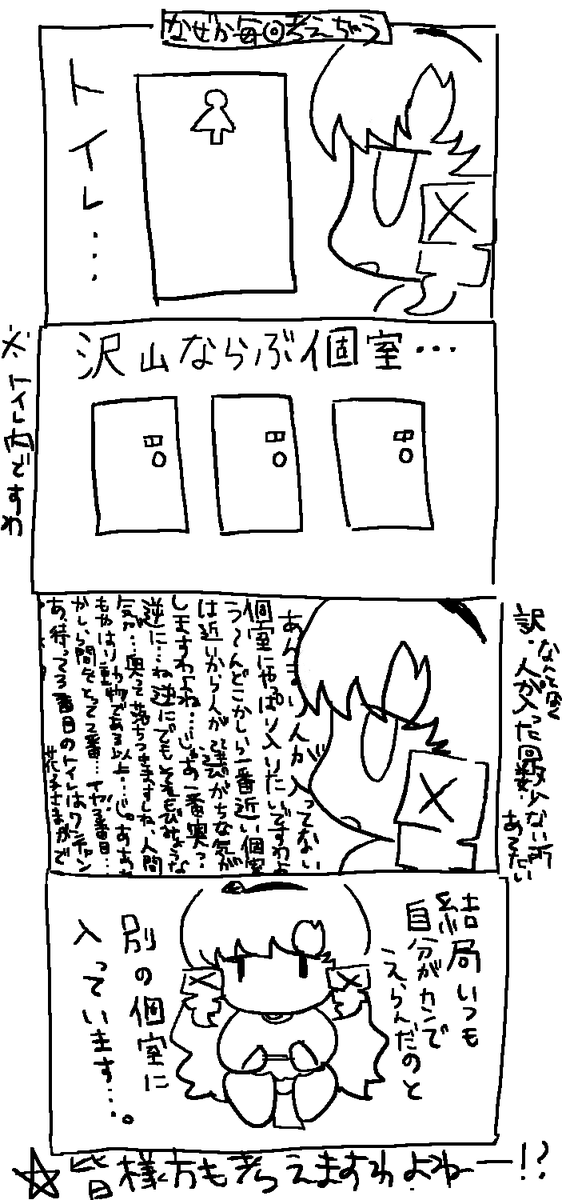 なぜか毎回考えちゃう
トイレ...
沢山ならぶ個室...
※トイレ内ですわ
あんまり人が入ってない
個室にやっぱり入りたいですわよ
う〜んどこかしら一番近い個室
は近いから人が選びがちな気が
しますわよね...じゃあ一番奥っ
逆に...ね逆にでもそれもみような
気が...奥って落ちつきますしね、人間
もやはり動物である以上...じゃあ
かしら間をとって2番...イヤ3番目...
あ、待って3番目のトイレはワンチャン
花子さまがで
訳・なんと無く
人が入った回数少ない所
あてたい
結局いつも
自分がカンで
えらんだのと
別の個室に
入っています...。
☆皆様方も考えますわよねー!?